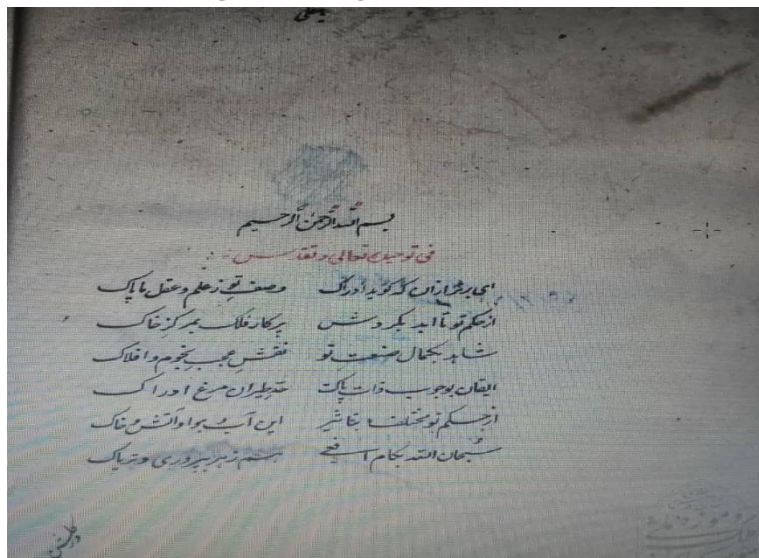 بسم الله الرحمن الرحیم
فی توحیده تعالی و تقدس
ای برتر ازان که گوید ادراک وصف تو ز علم و عقل ناپاک
از حکم تو تا ابد بگردش پرکار فلک بمرکز خاک
شاهد بکمال صنعت تو نقش عجب نجوم و افلاک
ایقان بوجوب ذات پاکت حد طیران مرغ ادراک
از حکم تو مختلف بتاثیر این آب و هوا و آتش و خاک
سبحان الله بکام افعی هم زهر بپروری و تریاک